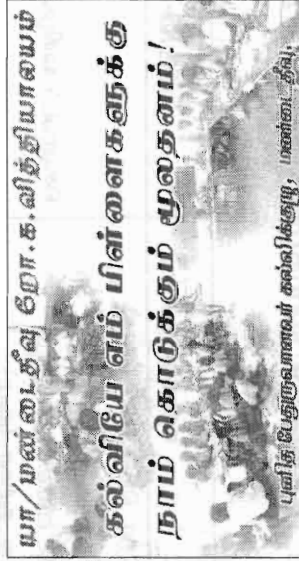 யா/மண்டைதீவு றோ.க.வித்தியாலயம்
கல்வியே எம் பிள்ளைகளுக்கு
நாம் கொடுக்கும் மூலதனம்!
புனித பேதுருவானவர் கல்விக்குழு, மண்டைதீவு.